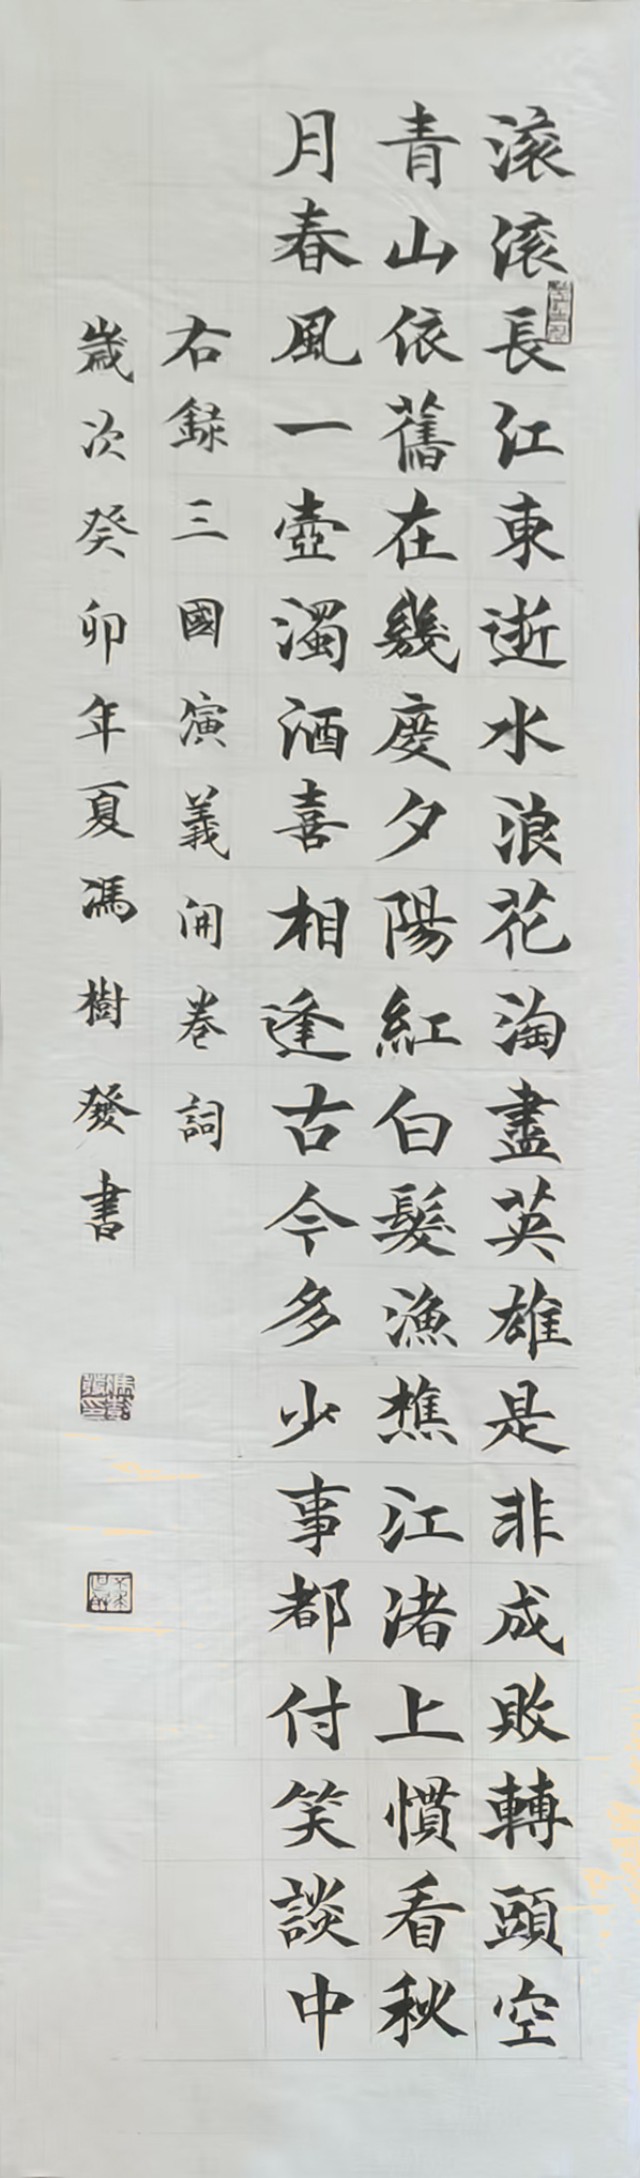 滚滚長江東逝水浪花淘盡英雄是非成敗轉頭空
青山依舊在幾度夕陽紅白髮漁樵江渚上慣看秋
月春風一壺濁酒喜相逢古今多少事都付笑談中
右録三國演義開卷詞
歲次癸卯年夏馮樹發書